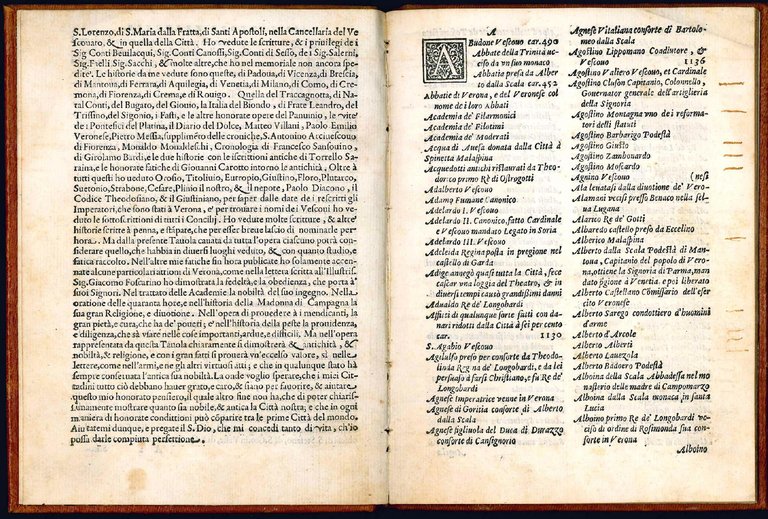 S. Lorenzo, di S. Maria dalla Fratta, di Santi Apostoli, nella Cancellaria del Ve
scouato, & in quella della Città. Ho vedute le scritture, & i priuilegi de i
Sig. Conti Beuilacqui, Sig. Conti Canossi, Sig. Conti di Sesso, dei Sig. Salerni,
Sig. Sacchi, & molte altre, che ho nel memoriale non ancora spe-
dite. Le historia da me vedute sono queste, di Padoua, di Vicenza, di Brescia,
di Mantoua, di Ferrara, di Aquilegia, di Venetia, di Milano, di Como, di Cre-
mona, di Fiorenza, di Crema, & di Rouigo. Quella del Traccagnotta, di Na-
tal Conti, del Bugato, del Giouio, la Italia del Biondo, di Frate Leandro, del
Trissino, del Sigonio, i Fasti, & le altre honorate opere del Panuinio, le vite
de i Pontefici del Platina, il Diario del Dolce, Matteo Villani, Paolo Emilio
Veronese, Pietro Messia, supplemento delle croniche, S. Antonino Arciuescouo
di Fiorenza, Monaldo Monaldeschi, Cronologia di Francesco Sansouino,
di Girolamo Bardi, e le due historie con le iscrittioni antiche di Torrello Sa-
raina, e le honorate fatiche di Giouanni Carotto intorno le antichità. Oltre à
tutti questi ho veduto Orosio, Titoliuio, Eutropio, Giustino, Floro, Plutarco,
Suetonio, Strabone, Cesare, Plinio il nostro, & il nepote, Paolo Diacono, il
Codice Theodosiano, & il Giustiniano, per saper dalle date de i rescritti gli
Imperatori, che sono stati à Verona, e per trouare i nomi dei Vescoui ho ve-
duto le sottoscrittioni di tutti i Concilij. Ho vedute molte scritture, & altre
historie scritte à penna, e stampate, che per esser breue lascio di nominarle per-
hora. Ma dalla presente Tauola cauata da tutta l'opera ciascuno potrà con-
siderare quello, che habbia in diuersi luoghi veduto, & con quanto studio, e
fatica raccolto. Nell'altre mie fatiche sin hora publicate ho solamente accen-
nate alcune particolari attioni di Verona, come nella lettera scritta all'Illustriss.
Sig. Giacomo Foscarino ho dimostrata la fedeltà, e la obedienza, che porta à
suoi Signori. Nel trattato delle Academie la nobiltà del suo ingegno. Nella
oratione delle quaranta hore, e nell'historia della Madonna di Campagna la
sua gran Religione, e diuotione. Nell'opera di prouedere à i mendicanti, la
gran pietà, e cura, che ha de' poueri, e nell'historia della peste la pronidenza,
e diligenza, che sà vsare nelle cose importanti, ardue, e difficili. Ma nell'opera
rappresentata da questa Tauola chiaramente si dimostrerà & antichità, &
nobiltà, & religione, e con i gran fatti si prouerà vn'eccelso valore, sì nelle
lettere, come nell'armi, e ne gli altri virtuosi atti; e che in qualunque stato hà
sempre conseruata l'antica sua nobiltà. La onde voglio sperare, che i miei Cit-
tadini tutto ciò debbano hauer grato, e caro, & siano per fauorire, & aiutare
questo mio honorato pensiero, il quale altro fine non ha, che di poter chiari-
ssimamente mostrare quanto sia nobile, & antica la Città nostra; e che in ogni
maniera di honorate conditioni può cõparire tra le prime Città del mondo.
Aiutatemi dunque, e pregate il S. Dio, che mi conceda tanto di vita, ch'io
possa darle compiuta perfettione.
A
ABudone Vescouo car. 490
Abbate della Trinità uc-
ciso da vn suo monaco
Abbatia presa da Alber
to dalla Scala car. 452
Abbatie di Verona, e del Veronese col
nome dei loro Abbati
Academia de' Filarmonici
Academia de' Filotimi
Academia de' Moderati
Acqua di Auesa donata dalla Città à
Spinetta Malaspina
Acquedotti antichi ristaurati da Theo-
dorico primo Re di Ostrogotti
Adalberto Vescouo
Adamo Fumane Canonico
Adelardo I. Vescouo
Adelardo II. Canonico, fatto Cardinale
e Vescouo mandato Legato in Soria
Adelardo III. Vescouo
Adeleida Regina posta in pregione nel
castello di Garda
Adige annegò quasi tutta la Città, fece
cascar vna loggia del Theatro, & in
diuersi tempi causò grandissimi danni
Adualdo Re de' Longobardi
Afflitti di qualunque sorte fatti con da-
nari ridotti dalla Città à sei per cento
car. 1130
S. Agabio Vescouo
Agilulfo preso per consorte da Theodo-
linda Regina de' Longobardi, e da lei
persuaso à farsi Christiano, e fu Re de'
Longobardi
Agnese Imperatrice venne in Verona
Agnese di Goritia consorte di Alberto
dalla Scala
Agnese figliuola del Duca di Durazzo
consorte di Cansignorio
Agnese Vitaliana consorte di Bartolo-
meo dalla Scala
Agostino Lippomano Coadiutore, &
Vescouo 1136
Agostino Valiero Vescouo, et Cardinale
Agostino Cluson Capitanio, Colonnello,
Gouernator generale dell'artiglieria
della Signoria
Agostino Montagna vno de i reforma-
tori delli statuti
Agostino Barbarigo Podestà
Agostino Giusto
Agostino Zambonardo
Agostino Moscardo
Agnino Vescouo (nesi
Ala leuatasi dalla diuotione de' Vero-
Alamani vecasi presso Benaco nella sel-
ua Lugana
Alarico Re de' Gotti
Albaredo castello preso da Eccelino
Alberico Malaspina
Alberto dalla Scala Podestà di Man-
toua, Capitanio del popolo di Vero-
na, ottiene la Signoria di Parma, man-
dato pigione di Venetia, e poi liberato
Alberto Castellano Comissario dell'eser
cito Veronese
Alberto Sarego condottiero d'huomini
d'arme
Alberto d'Arcole
Alberto Alberti
Alberto Lauezola
Alberto Badoero Podestà
Alboina della Scala Abbadessa nel mo
nasterio delle madre di Campomarzo
Alboina dalla Scala monaca in santa
Lucia
Alboino primo Re de' Longobardi vc-
ciso di ordine di Rosimonda sua con-
sorte in Verona
Alboino